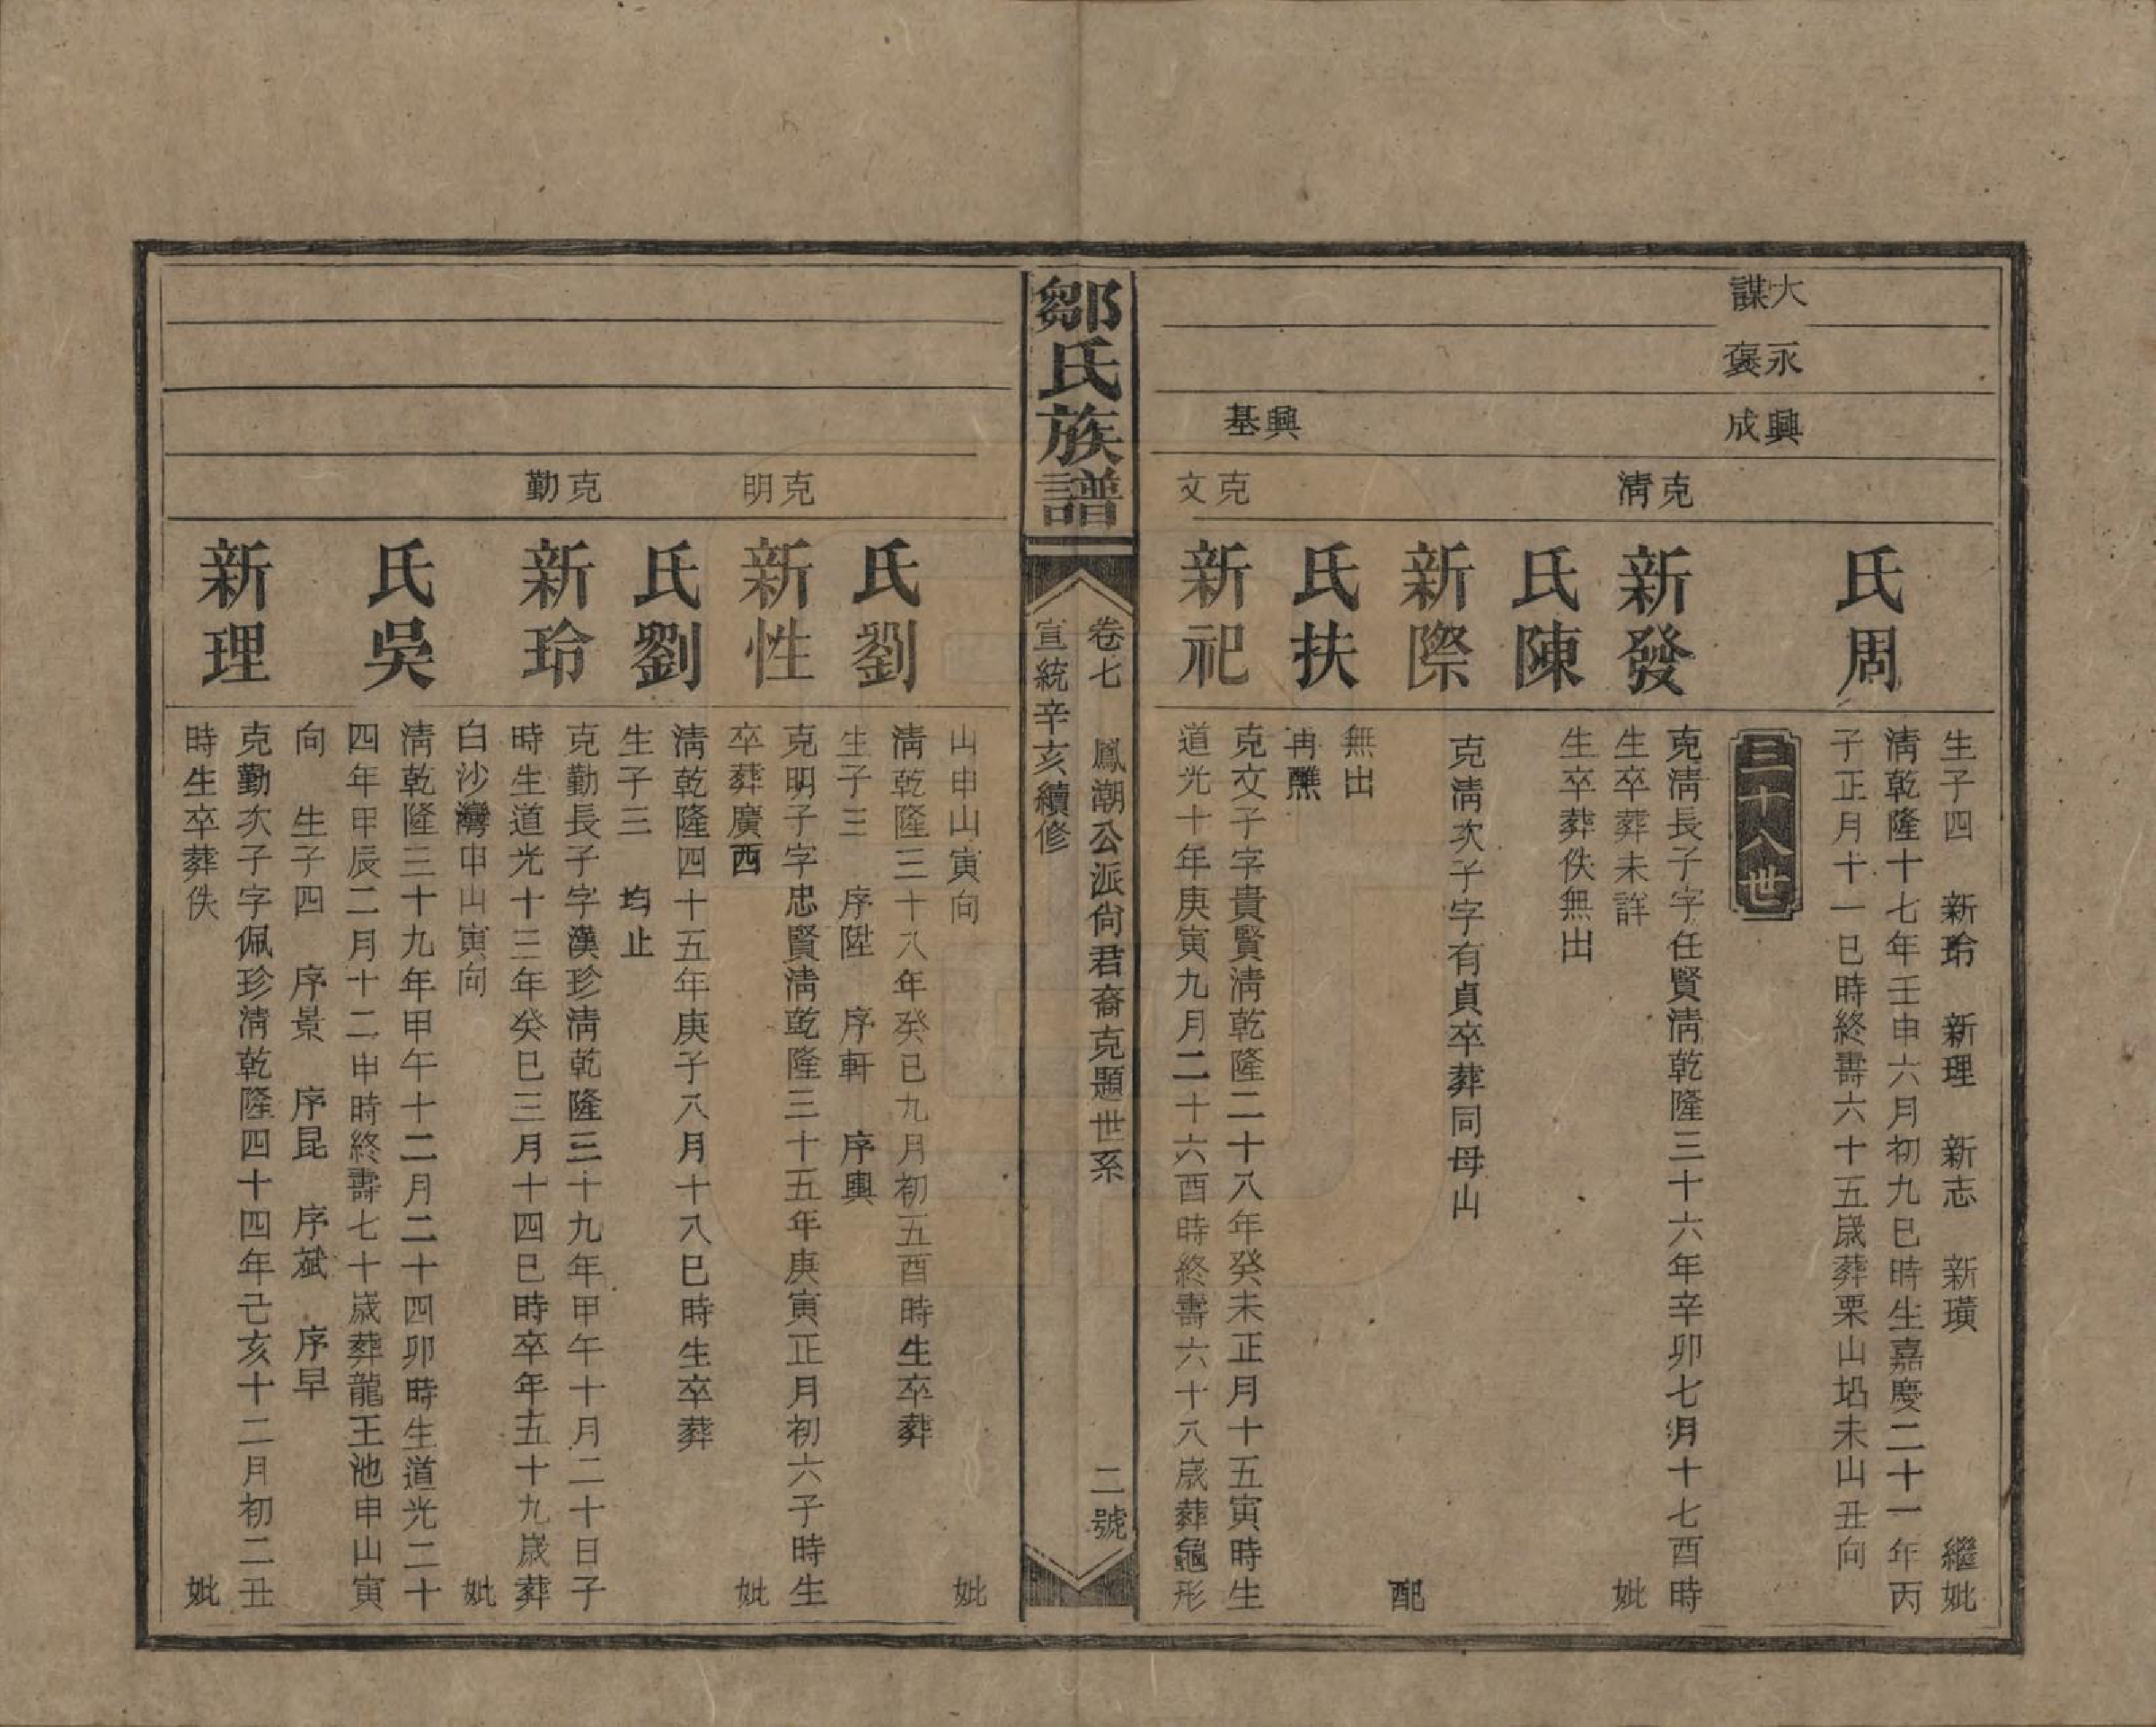 大謀
永褒
興成
生子四　新玲　新理　新志　新璜　繼妣
周氏
清乾隆十七年壬申六月初九巳時生嘉慶二十一年丙
子正月十一巳時終壽六十五歲葬栗山𡉏未山丑向
三十八世
克清
新發
克淸長子字任賢淸乾隆三十六年辛卯七月十七酉時
生卒葬未詳　妣
陳氏
生卒葬佚無出
新際
克淸次子字有貞卒葬同母山
配
扶氏
無出
再醮
興基
克文
新祀
克文子字貴賢淸乾隆二十八年癸未正月十五寅時生
道光十年庚寅九月二十六酉時終壽六十八歲葬龜形
鄒氏族譜
卷七　鳳潮公派尙君裔克題世系　二號
宣統辛亥續修
山申山寅向　妣
劉氏
淸乾隆三十八年癸巳九月初五酉時生卒葬
生子三　序陞　序軒　序輿
克明
新性
克明子字忠賢淸乾隆三十五年庚寅正月初六子時生
卒葬廣西　妣
劉氏
淸乾隆四十五年庚子八月十八巳時生卒葬
生子三　均止
克勤
新玲
克勤長子字漢珍淸乾隆三十九年甲午十月二十日子
時生道光十三年癸巳三月十四巳時卒年五十九歲葬
白沙灣申山寅向　妣
吳氏
淸乾隆三十九年甲午十二月二十四卯時生道光二十
四年甲辰二月十二申時終壽七十歲葬龍王池申山寅
向　生子四　序景　序昆　序斌　序早
新理
克勤次子字佩珍淸乾隆四十四年己亥十二月初二丑
時生卒葬佚　妣